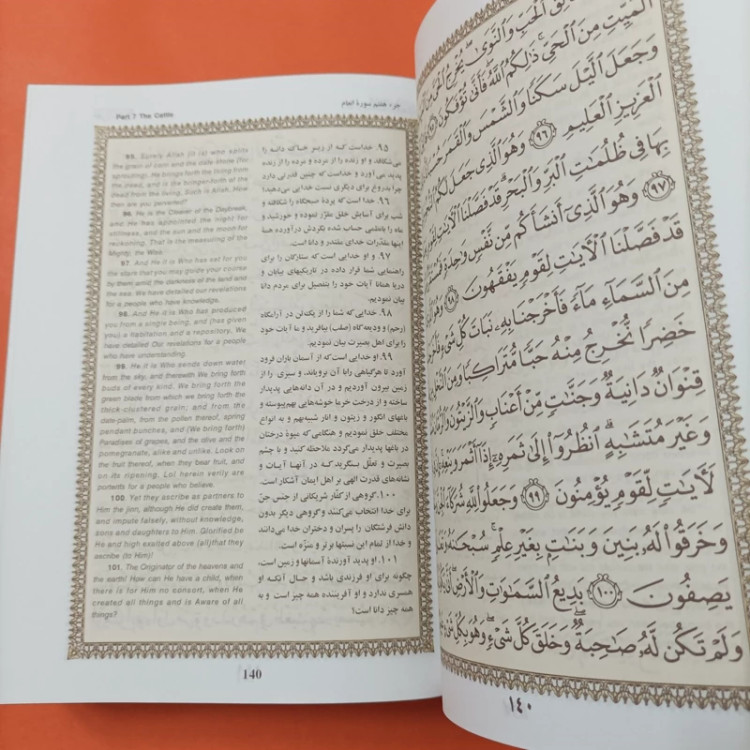 Part 7 The Cattle
جزء هفتم سورهٔ انعام
95. Surely Allah (it is) who splits
the grain of corn and the date stone (for
sprouting). He brings forth the living from
the dead, and is the bringer-forth of the
dead from the living. Such is Allah. How
then are you perverted?
96. He is the Cleaver of the Daybreak,
and He has appointed the night for
stillness, and the sun and the moon for
reckoning. That is the measuring of the
Mighty, the Wise.
97. And He it is Who has set for you
the stars that you may guide your course
by them amid the darkness of the land and
the sea. We have detailed our revelations
for a people who have knowledge.
98. And He it is Who has produced
you from a single being, and (has given
you) a habitation and a repository, We
have detailed Our revelations for a people
who have understanding.
99. He it is Who sends down water
from the sky; and therewith We bring forth
buds of every kind. We bring forth the
green blade from which we bring forth the
thick-clustered grain; and from the
date-palm, from the pollen thereof, spring
pendant bunches, and (We bring forth)
Paradises of grapes, and the olive and the
pomegranate, alike and unlike. Look on
the fruit thereof, when they bear fruit, and
on its ripening. Lo! herein verily are
portents for a people who believe.
100. Yet they ascribe as partners to
Him the jinn, although He did create them,
and impute falsely, without knowledge,
sons and daughters to Him. Glorified be
He and high exalted above (all)that they
ascribe (to Him)!
101. The Originator of the heavens and
the earth! How can He have a child, when
there is for Him no consort, when He
created all things and is Aware of all
things?
۹۵. خداست که از زیر خاک دانه را
می‌شکافد و زنده را از مرده و مرده را از زنده
پدید می آورد و اوست که چنین قدرتی دارد
چرا بدروغ برای دیگری نسبت خدایی می‌دهید؛
۹۶. خداست که پردهٔ صبحگاه را شکافته و
شب برای آسایش خلق مقرّر نموده و خورشید و
ماه را به نظمی معیّن بگردش درآورده همهٔ
اینها مقدّرات خدای مقتدر و دانا است.
۹۷. و او است خدایی که ستارگان را برای
راهنمایی شما قرار داده در تاریکیهای بیابان و
دریا همانا آیات خود را بتفصیل برای مردم دانا
بیان نمودیم.
۹۸. خدایی‌که شما را از یک‌تن در آرامگاه
(رحم) و ودیعه‌گاه (صلب) بیافرید و ما آیات خود
را برای اهل بصیرت بیان نمودیم.
۹۹. و او خدایی است که از آسمان باران فرود
آورد تا هرگیاهی را با آن برویاند، و سبزی را از
زمین بیرون آوردیم و در آن دانه‌هایی پدیدار
ساخته و از درخت خرما خوشه‌هایی بهم‌پیوسته و
باغهای انگور و زیتون و انار شبیه‌بهم و به انواع
مختلف خلق نمودیم و هنگامی که میوهٔ درختان
در باغها پدیدار گردد ملاحظه کنید و با چشم
بصیرت و تعقّل بنگرید،که در آنها آیات و
نشانه‌های قدرت الهی بر اهل ایمان آشکار است.
۱۰۰. گروهی از کفّار شریکانی از جنس جنّ
برای خدا انتخاب می‌کنند و گروهی دیگر بدون
دانش فرشتگان را پسران و دختران خدا می‌دانند
و خدا از تمام این نسبتها برتر و منزّه است.
۱۰۱. او پدید آورندهٔ آسمانها و زمین است،
چگونه برای او فرزندی باشد و حال آنکه او
همسری ندارد و او آفرینندهٔ همه چیز است و به
همه چیز دانا است؛
140
ٱلْحَبِّ وَٱلنَّوَىٰ يُخْرِجُ ٱلْحَىَّ
ٱلْمَيِّتِ مِنَ ٱلْحَيِّ ذَٰلِكُمُ ٱللَّهُ فَأَنَّىٰ تُؤْفَكُونَ
وَجَعَلَ ٱلَّيْلَ سَكَنًا وَٱلشَّمْسَ وَٱلْقَمَرَ
ٱلْعَزِيزِ ٱلْعَلِيمِ ۹۶ وَهُوَ ٱلَّذِى جَعَلَ لَكُمُ
بِهَا فِى ظُلُمَٰتِ ٱلْبَرِّ وَٱلْبَحْرِ قَدْ فَصَّلْنَا ٱلْآيَٰتِ
۹۷ وَهُوَ ٱلَّذِىٓ أَنشَأَكُم مِّن نَّفْسٍ وَٰحِدَةٍ
قَدْ فَصَّلْنَا ٱلْآيَٰتِ لِقَوْمٍ يَفْقَهُونَ ۹۸ وَهُوَ
مِنَ ٱلسَّمَآءِ مَآءً فَأَخْرَجْنَا بِهِۦ نَبَاتَ كُلِّ شَىْءٍ
خَضِرًا نُّخْرِجُ مِنْهُ حَبًّا مُّتَرَاكِبًا وَمِنَ
قِنْوَانٌ دَانِيَةٌ وَجَنَّٰتٍ مِّنْ أَعْنَابٍ وَٱلزَّيْتُونَ
وَغَيْرَ مُتَشَٰبِهٍ ٱنظُرُوٓا۟ إِلَىٰ ثَمَرِهِۦٓ إِذَآ أَثْمَرَ
لَآيَٰتٍ لِّقَوْمٍ يُؤْمِنُونَ ۹۹ وَجَعَلُوا۟ لِلَّهِ شُرَكَآءَ
وَخَرَقُوا۟ لَهُۥ بَنِينَ وَبَنَٰتٍۭ بِغَيْرِ عِلْمٍ سُبْحَٰنَهُۥ
يَصِفُونَ ۱۰۰ بَدِيعُ ٱلسَّمَٰوَٰتِ وَٱلْأَرْضِ
وَلَمْ تَكُن لَّهُۥ صَٰحِبَةٌ وَخَلَقَ كُلَّ شَىْءٍ وَهُوَ بِكُلِّ
۱۴۰